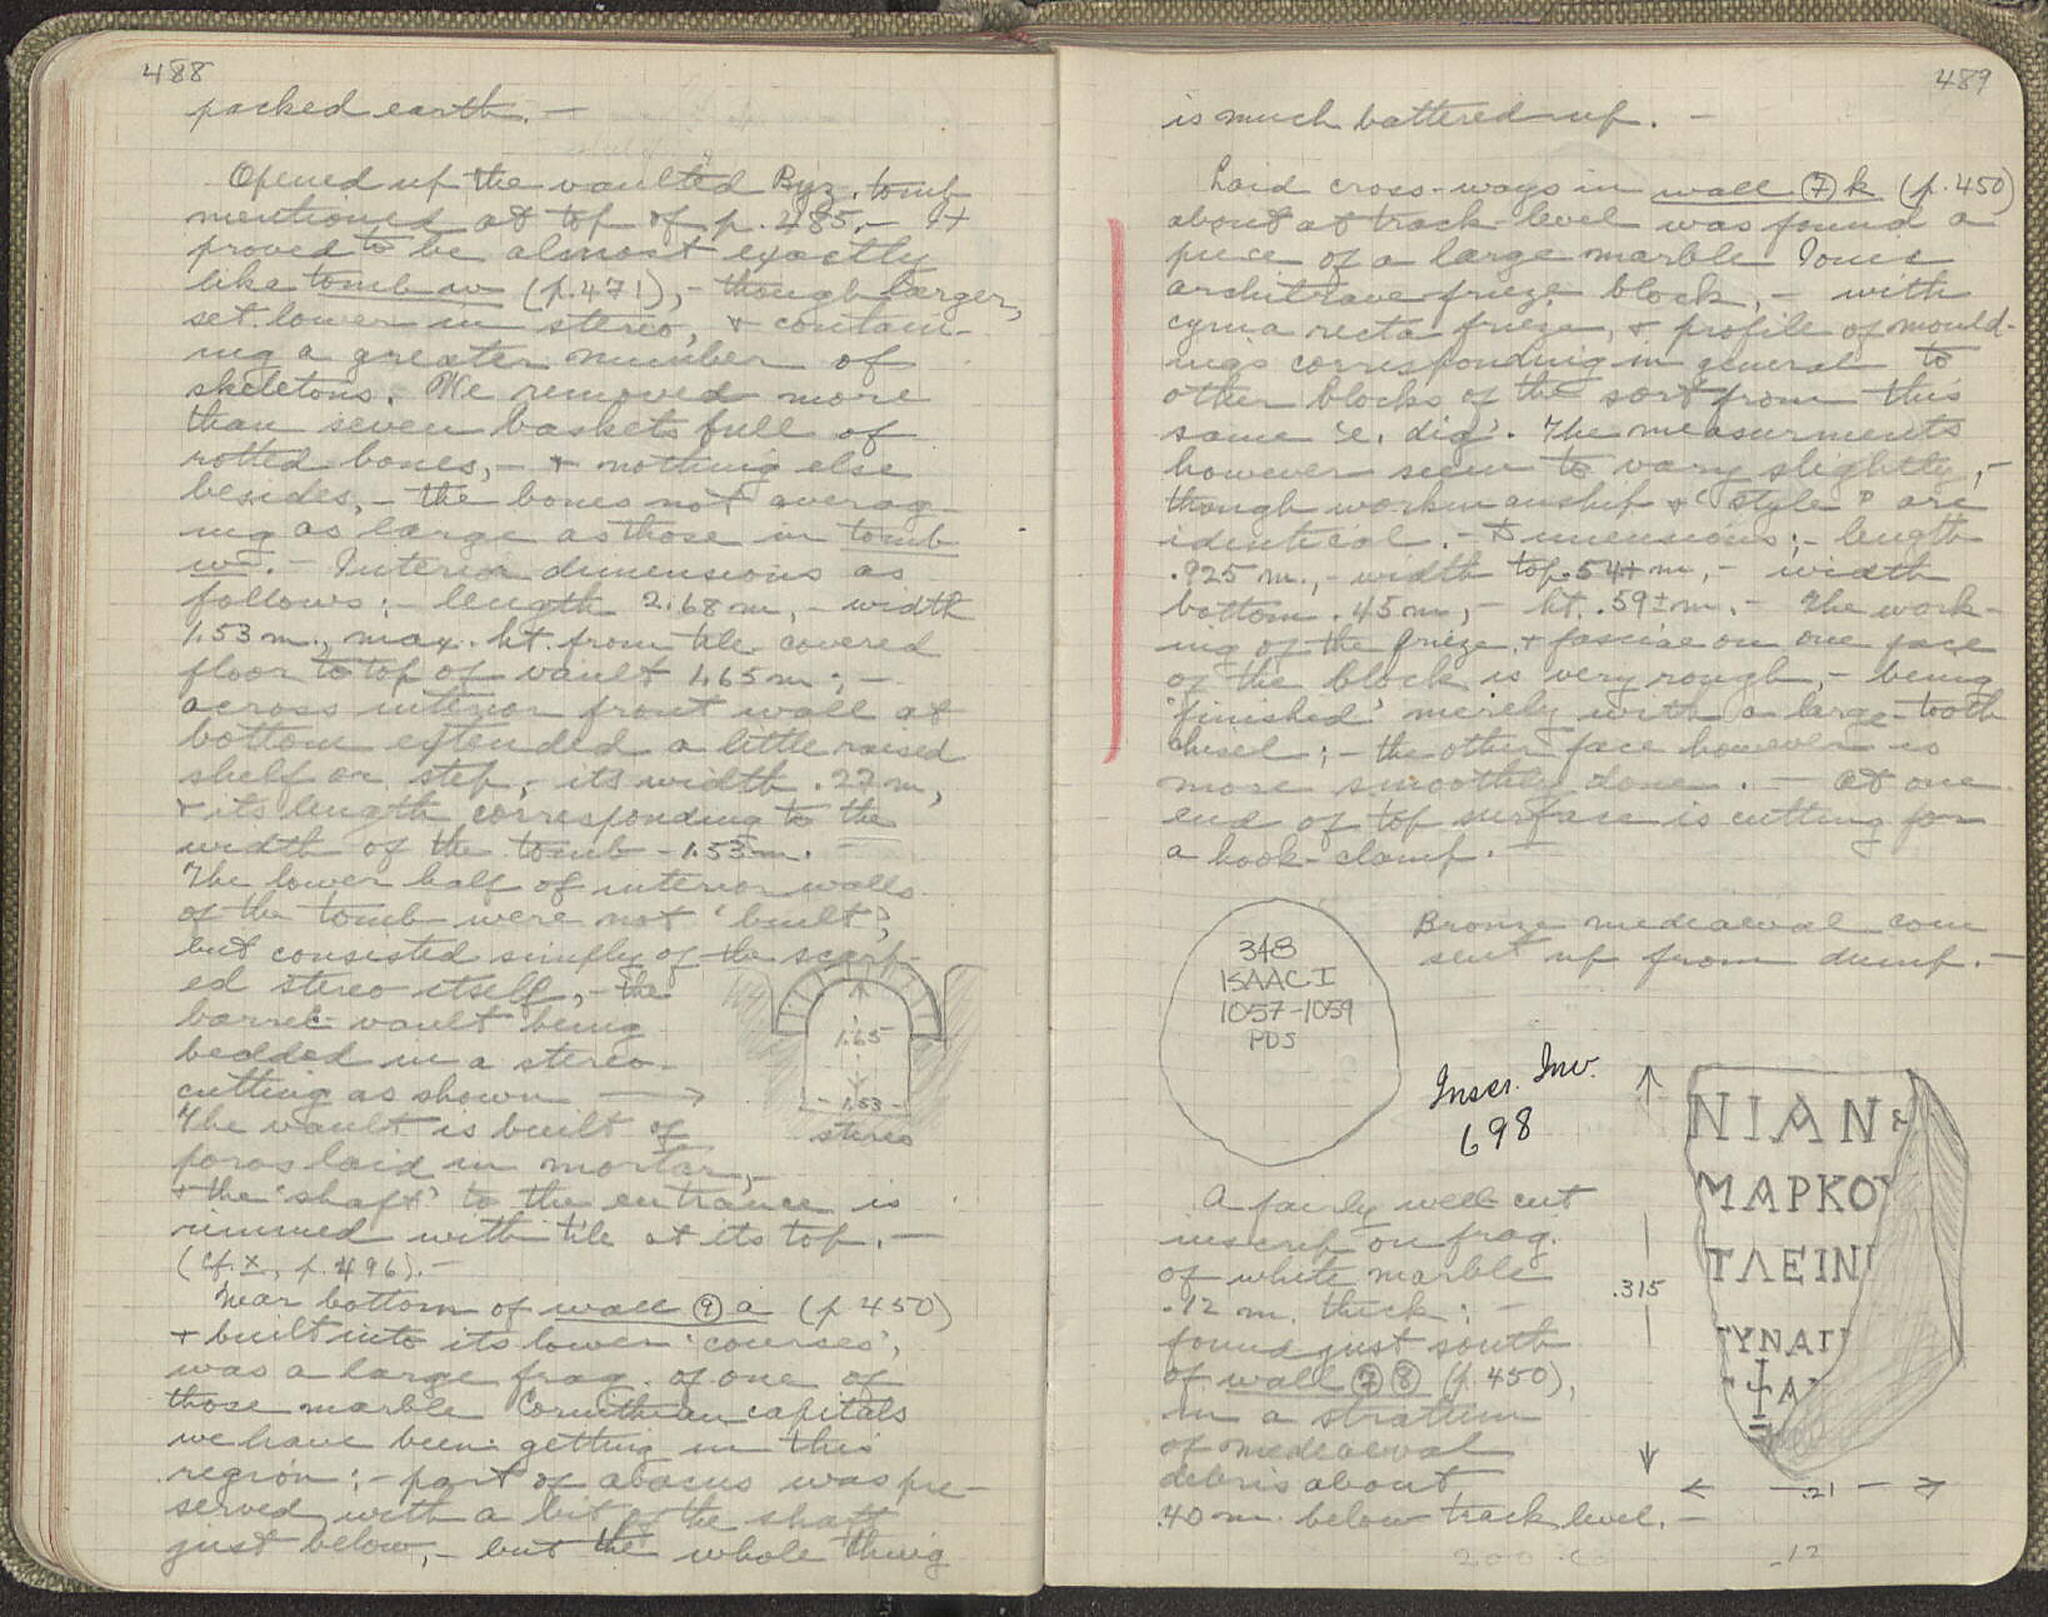 488
packed earth. —
Opened up the vaulted Byz. tomb
mentioned at top of p. 485. — It
proved to be almost exactly
like tomb w (p. 471), — though larger,
set lower in stereo, + contain-
ing a greater number of
skeletons. We removed more
than seven baskets full of
rotted bones, — + nothing else
besides, — the bones not averag-
ing as large as those in tomb
w. — Interior dimensions as
follows: — length 2.68 m, — width
1.53 m., max. ht. from tile covered
floor to top of vault 1.65 m; —
across interior front wall at
bottom extended a little raised
shelf or step, — its width .27 m,
+ its length corresponding to the
width of the tomb — 1.53 m. —
The lower half of interior walls
of the tomb were not 'built',
but consisted simply of the scarp-
ed stereo itself, — the
barrel-vault being
bedded in a stereo-
cutting as shown →
1.65
1.53
stereo
The vault is built of
poros laid in mortar, —
+ the 'shaft' to the entrance is
rimmed with tile at its top. —
(cf. x, p. 496). —
Near bottom of wall ⑨ a (p 450)
+ built into its lower 'courses',
was a large frag. of one of
those marble Corinthian capitals
we have been getting in this
region; — part of abacus was pre-
served with a bit of the shaft
just below, — but the whole thing
489
is much battered up. —
Laid cross-ways in wall ⑦ k (p. 450)
about at track-level was found a
piece of a large marble Ionic
architrave-frieze block, — with
cyma recta frieze, + profile of mould-
ings corresponding in general to
other blocks of the sort from this
same 'e. dig'. The measurments
however seem to vary slightly, —
though workmanship + "style" are
identical. — Dimensions: — length
.925 m., — width top .54+ m, — width
bottom .45 m, — ht. .59± m. — The work-
ing of the frieze + fasciae on one face
of the block is very rough, — being
'finished' merely with a large-tooth
chisel; — the other face however is
more smoothly done. — At one
end of top surface is cutting for
a hook-clamp. —
Bronze mediaeval coin
sent up from dump. —
348
ISAAC I
1057-1059
PDS
Inscr. Inv.
698
A fairly well cut
inscrip on frag.
of white marble
.12 m. thick; —
found just south
of wall ⑦ ⑧ (p. 450),
in a stratum
of mediaeval
debris about
.40 m. below track level. —
ΝΙΑΝ
ΜΑΡΚΟΥ
ΤΛΕΙΝ
ΥΝΑΙ
ΨΑ
.315
.21
.12